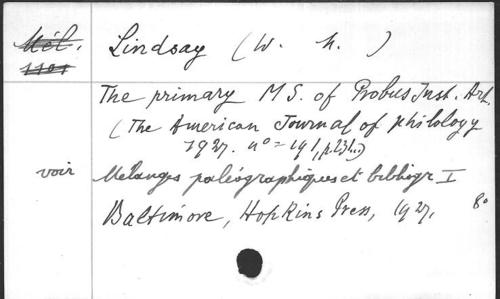 Mél. Lindsay (W. M.)
1101
The primary MS. of Probus Inst. Art.
(The American Journal of philology
1927. n° = 191, p.231...)
voir Mélanges paléographiques et bibliogr I
Baltimore, Hopkins Press, 1927. 8°